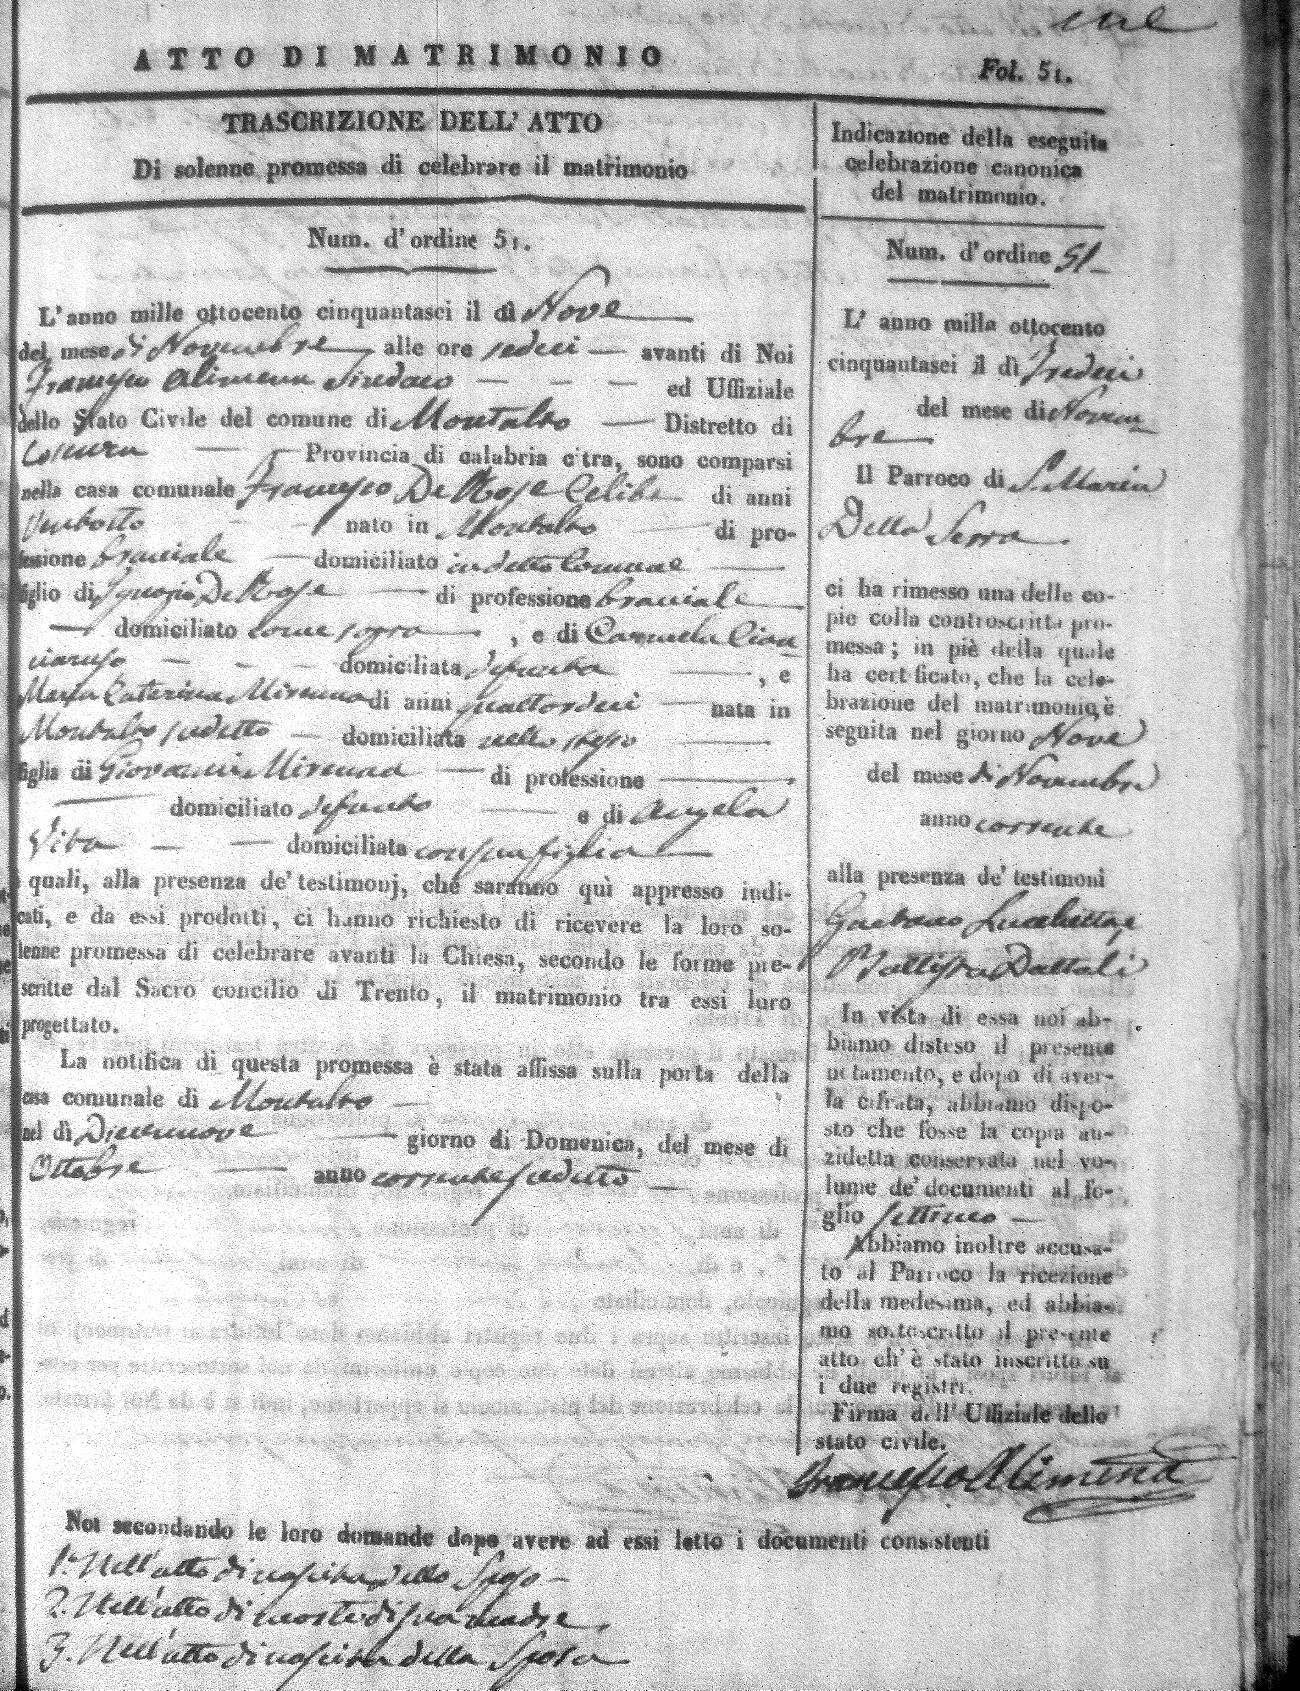 ATTO DI MATRIMONIO
Fol. 51.
TRASCRIZIONE DELL' ATTO
Di solenne promessa di celebrare il matrimonio
Num. d'ordine 51.
L'anno mille ottocento cinquantasei il dì Nove
del mese di Novembre alle ore sedici avanti di Noi
Francesco Alimena Sindaco ed Uffiziale
dello Stato Civile del comune di Montalto Distretto di
Cosenza Provincia di calabria citra, sono comparsi
nella casa comunale Francesco De Rose Celibe di anni
Ventotto nato in Montalto di pro-
fessione bracciale domiciliato in detto Comune
figlio di Ignazio De Rose di professione bracciale
domiciliato come sopra, e di Carmela
domiciliata defunta, e
Maria Caterina Mirenna di anni quattordici nata in
Montalto sudetto domiciliata nello stesso
figlia di Giovanni Mirenna di professione
domiciliato defunto e di Angela
Vita domiciliata con sua figlia
quali, alla presenza de' testimonj, che saranno quì appresso indi-
cati, e da essi prodotti, ci hanno richiesto di ricevere la loro so-
lenne promessa di celebrare avanti la Chiesa, secondo le forme pre-
scritte dal Sacro concilio di Trento, il matrimonio tra essi loro
progettato.
La notifica di questa promessa è stata affissa sulla porta della
casa comunale di Montalto
nel dì Diecinnove giorno di Domenica, del mese di
Ottobre anno corrente sudetto
Indicazione della eseguita
celebrazione canonica
del matrimonio.
Num. d'ordine 51
L' anno mille ottocento
cinquantasei il dì Tredici
del mese di Novem
bre
Il Parroco di S. Maria
Della Serra.
ci ha rimesso una delle co-
pie colla controscritta pro-
messa; in piè della quale
ha certificato, che la cele-
brazione del matrimonio è
seguita nel giorno Nove
del mese di Novembre
anno corrente
alla presenza de' testimoni
Gaetano Lucchetta, e
Battista Dattoli
In vista di essa noi ab-
biamo disteso il presente
notamento, e dopo di aver-
la cifrata, abbiamo dispo-
sto che fosse la copia an-
zidetta conservata nel vo-
lume de' documenti al fo-
glio settimo
Abbiamo inoltre accusa-
to al Parroco la ricezione
della medesima, ed abbia-
mo sottoscritto il presente
atto ch'è stato inscritto su
i due registri.
Firma dell' Uffiziale dello
stato civile.
Francesco Alimena
Noi secondando le loro domande dopo avere ad essi letto i documenti consistenti
1. Nell'atto di nascita dello Sposo
2. Nell'atto di morte di sua madre.
3. Nell'atto di nascita della Sposa